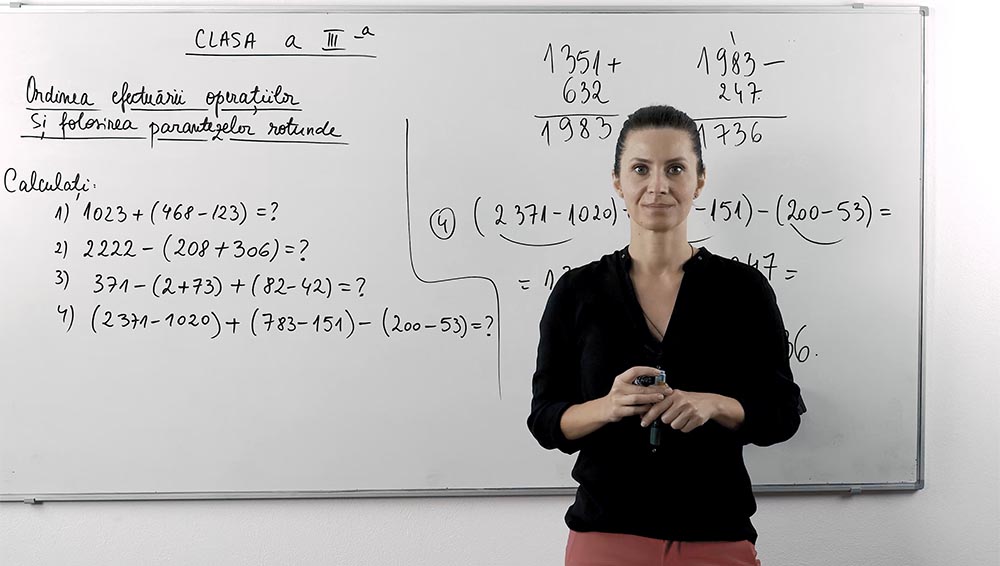 CLASA a III-a
Ordinea efectuării operațiilor
și folosirea parantezelor rotunde
Calculați:
1) 1023 + (468 - 123) = ?
2) 2222 - (208 + 306) = ?
3) 371 - (2 + 73) + (82 - 42) = ?
4) (2371 - 1020) + (783 - 151) - (200 - 53) = ?
1351 +
632
1983
1983 -
247
1736
4) (2371 - 1020) - 151) - (200 - 53) =
= 1 47 =
36.